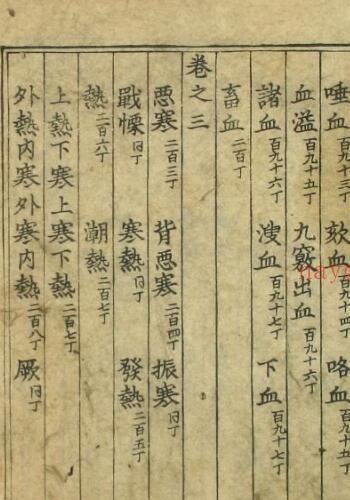 唾血百九十三丁 欬血百九十四丁 咯血百九十五丁
血溢百九十五丁 九竅出血百九十六丁
諸血百九十六丁 溲血百九十七丁 下血百九十七丁
畜血二百丁
卷之三
惡寒二百三丁 背惡寒二百四丁 振寒同丁
戰慄同丁 寒熱同丁 發熱二百五丁
熱二百六丁 潮熱二百七丁
上熱下寒上寒下熱二百七丁
外熱內寒外寒內熱二百八丁 厥同丁